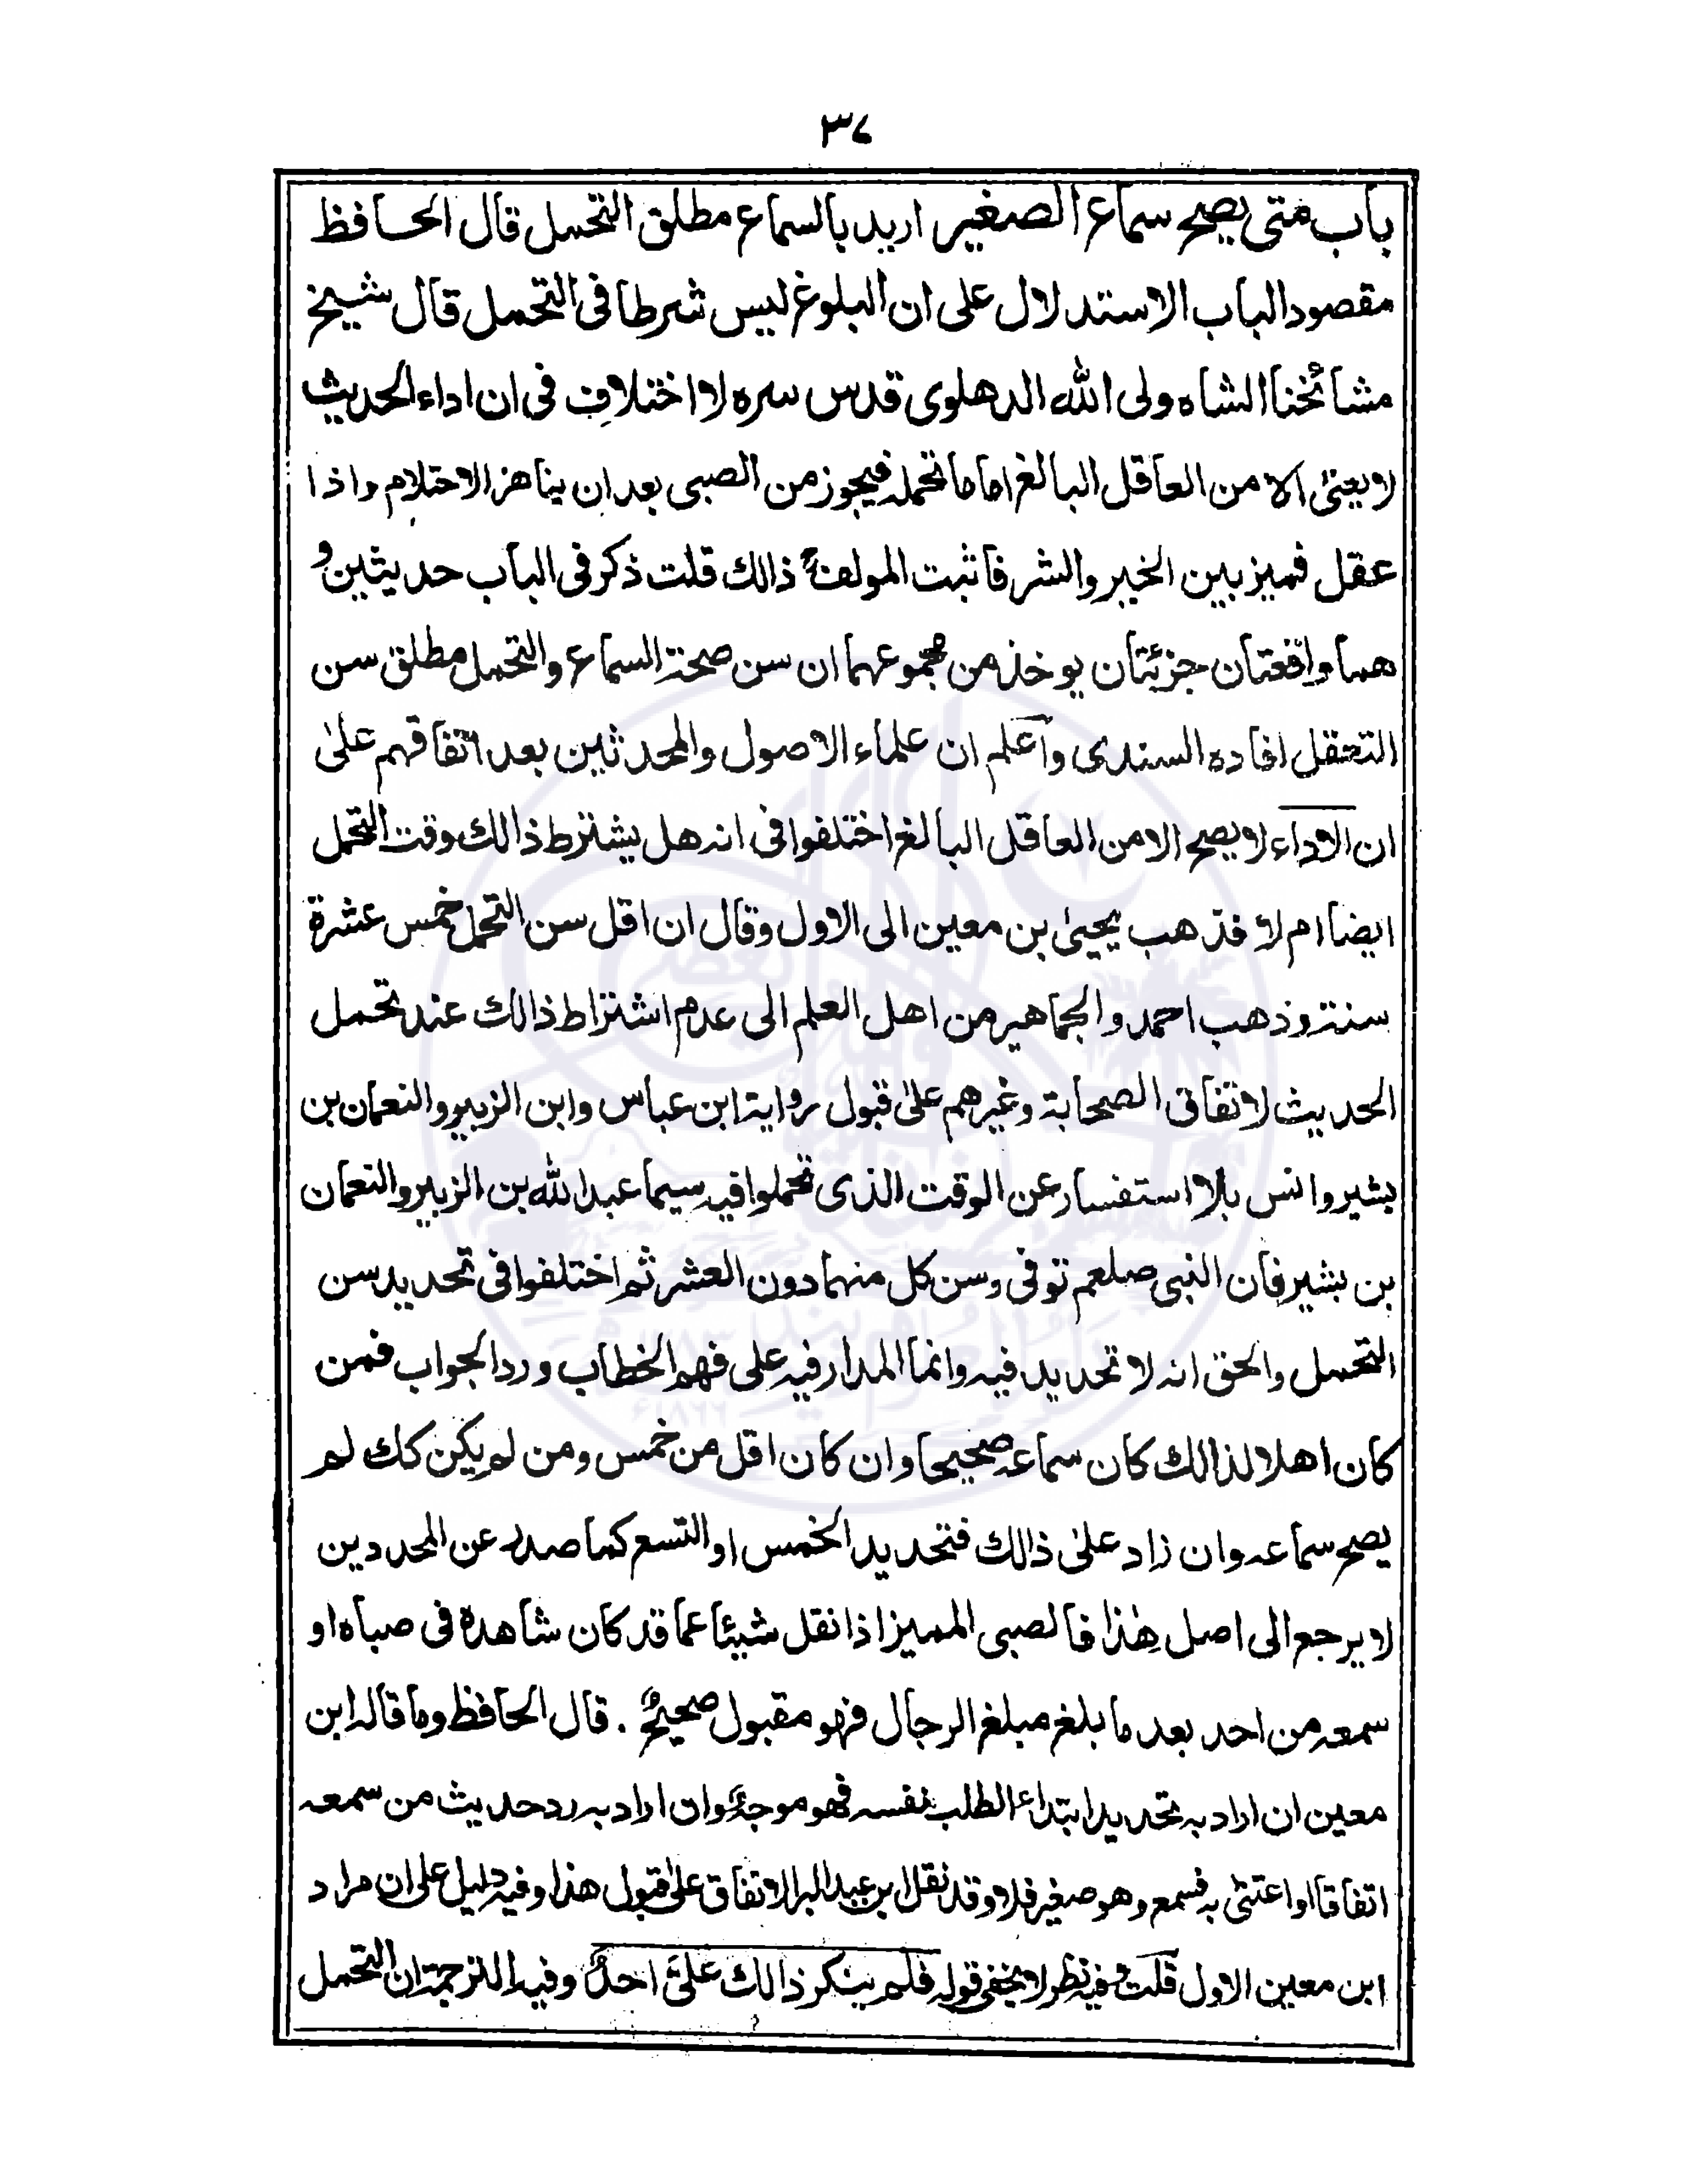 ٣٧
باب متى يصح سماع الصغير اريد بالسماع مطلق التحمل قال الحافظ
مقصود الباب الاستدلال على ان البلوغ ليس شرطا فى التحمل قال شيخ
مشائخنا الشاه ولى الله الدهلوى قدس سره لا اختلاف فى ان اداء الحديث
لا يعتنى الا من العاقل البالغ اما ما تحمله فيجوز من الصبى بعد ان يناهز الاحتلام واذا
عقل فميز بين الخير والشر فاثبت المولفؒ ذالك قلت ذكر فى الباب حديثين و
هما واقعتان جزئيتان يوخذ من مجموعهما ان سن صحة السماع والتحمل مطلق سن
التعقل افاده السندى واعلم ان علماء الاصول والمحدثين بعد اتفاقهم علىٰ
ان الاداء لا يصح الا من العاقل البالغ اختلفوا فى انه هل يشترط ذالك وقت التحمل
ايضا ام لا فذهب يحيىٰ بن معين الى الاول وقال ان اقل سن التحمل خمس عشرة
سنة وذهب احمد والجماهير من اهل العلم الى عدم اشتراط ذالك عند تحمل
الحديث لاتفاق الصحابة وغيرهم علىٰ قبول رواية ابن عباس وابن الزبير والنعمان بن
بشير وانس بلا استفسار عن الوقت الذى تحملوا فيه سيما عبد الله بن الزبير والنعمان
بن بشير فان النبى صلعم توفى وسن كل منهما دون العشر ثم اختلفوا فى تحديد سن
التحمل والحق انه لا تحديد فيه وانما المدار فيه على فهم الخطاب ورد الجواب فمن
كان اهلا لذالك كان سماعه صحيحا وان كان اقل من خمس ومن لم يكن كك لم
يصح سماعه وان زاد علىٰ ذالك فتحديد الخمس او التسع كما صدر عن المحددين
لا يرجع الى اصل هٰذا فالصبى المميز اذا نقل شيئا عما قد كان شاهده فى صباه او
سمعه من احد بعد ما بلغ مبلغ الرجال فهو مقبول صحيحٌ . قال الحافظ وما قاله ابن
معين ان اراد به تحديد ابتداء الطلب بنفسه فهو موجهٌ وان اراد به رد حديث من سمعه
اتفاقا او اعتنىٰ به فسمع وهو صغير فلا وقد نقل ابن عبد البر الاتفاق علىٰ قبول هذا وفيه دليل على ان مراد
ابن معين الاول قلت وفيه نظر لا يخفى قوله فلم ينكر ذالك علىَّ احدٌ وفيه الترجمة ان التحمل